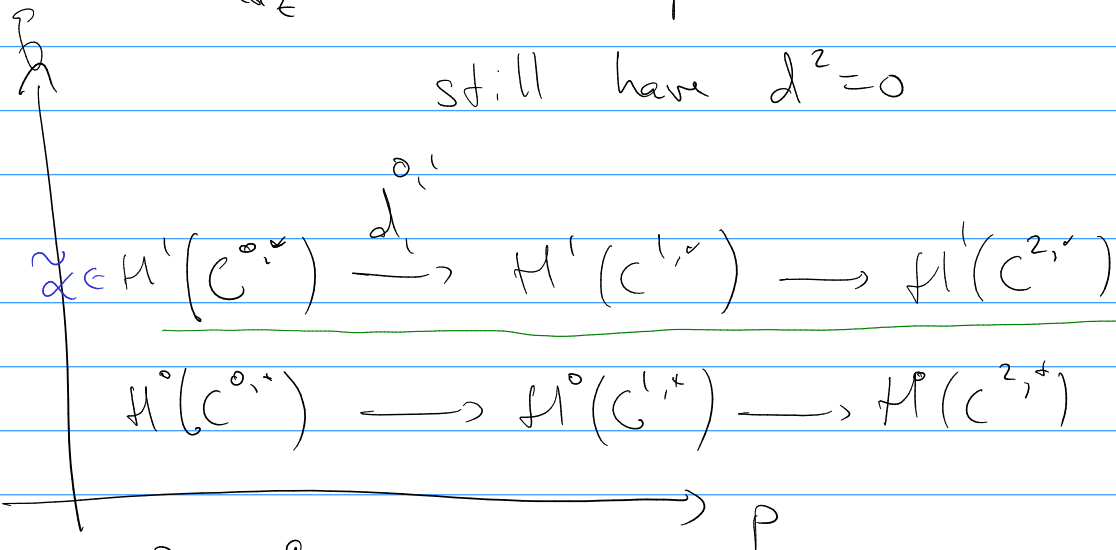 still have d²=0
d₁^{0,1}
α̃ ∈ H¹(C^{0,*}) ⟶ H¹(C^{1,*}) ⟶ H¹(C^{2,*})
H⁰(C^{0,*}) ⟶ H⁰(C^{1,*}) ⟶ H⁰(C^{2,*})
p